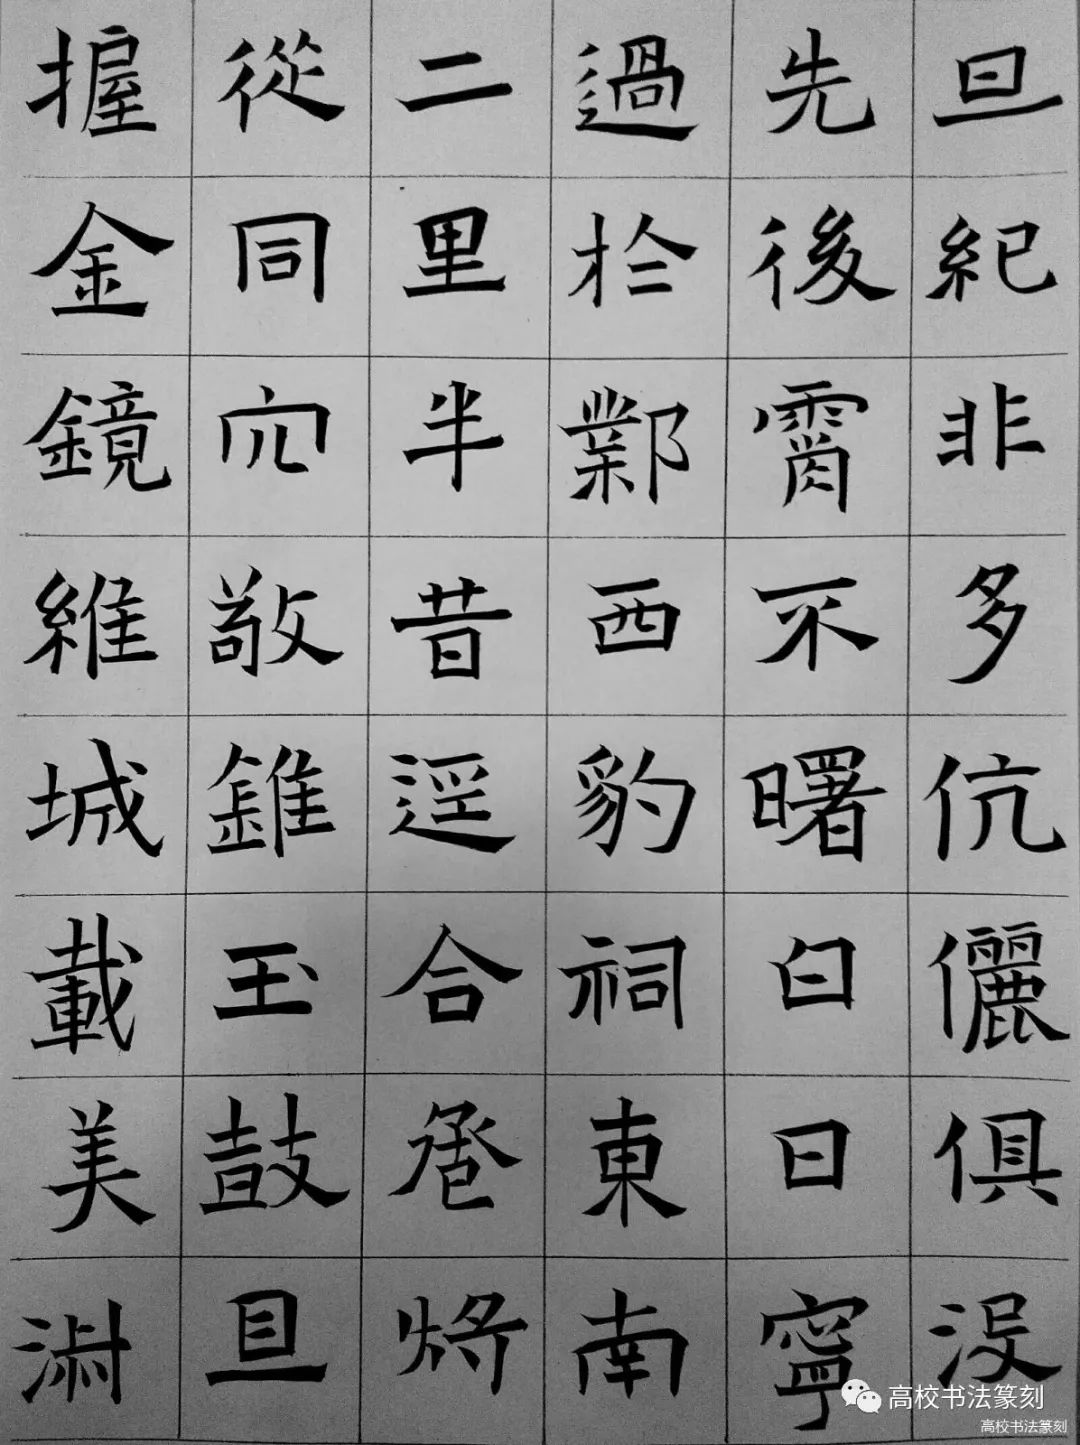 旦紀非多伉儷俱沒
先後霄不曙白日寧
過於鄴西豹祠東南
二里半昔逕合卺將
從同穴敬錐玉鼓
握金鏡維城載美
高校书法篆刻
高校书法篆刻